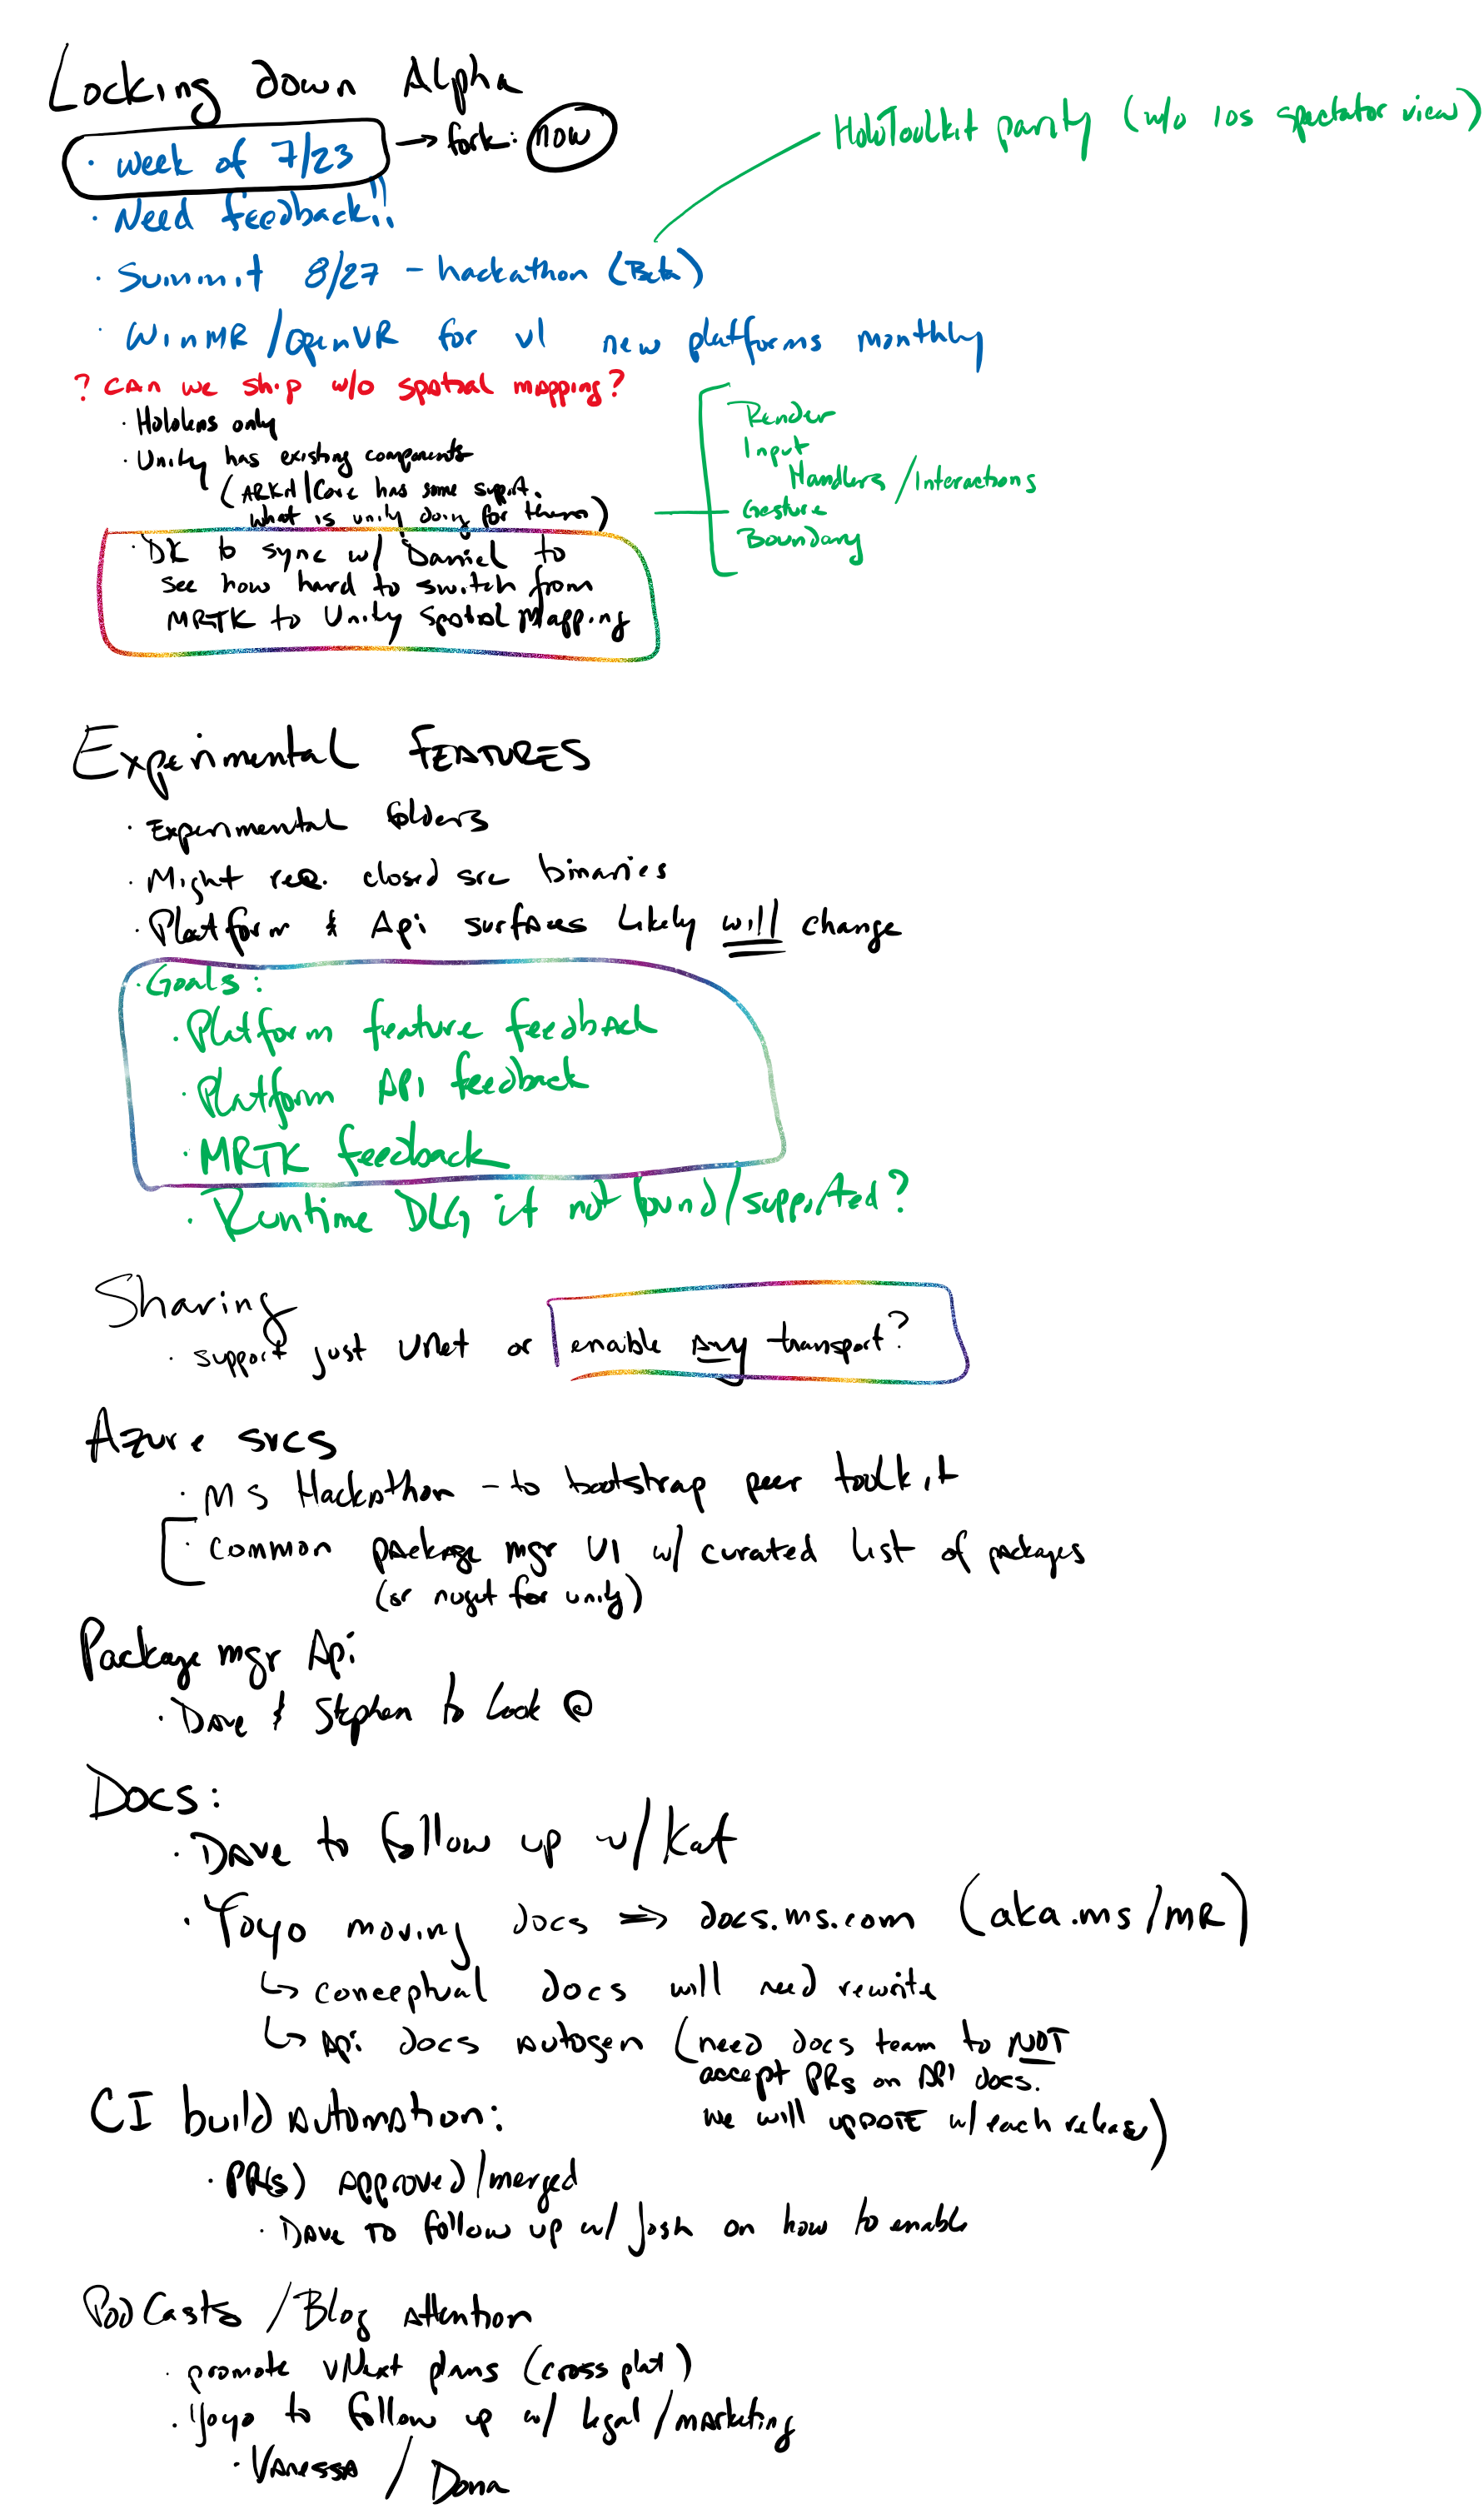 Locking down Alpha
· week of 7/23 → fork: now
HoloToolkit parity (w/o ios spectator view)
· Need feedback!!
· Summit 8/27 - hackathon (Beta)
· WinMR/OpenVR for v1 new platforms monthly
? can we ship w/o spatial mapping?
· Hololens only
· Unity has existing components
(ARKit/Core has some support.
what is unity doing for them)
Render
Input
Handlers/Interactions
Gesture
Boundary
· DK to sync w/ Daniel to
see how hard to switch from
MRTK to Unity Spatial Mapping
Experimental Features
· Experimental folders
· Might req. closed src binaries
· Platform & Api surfaces likely will change
· Goals:
· Platform feature feedback
· Platform API feedback
· MRTK feedback
· Runtime DLG if not found/supported?
Sharing
· support just Unet or enable any transport?
Azure srcs
· MS Hackathon - to bootstrap peer toolkit
· common package mgr UI w/ curated list of packages
(or nuget for unity)
Package mgr Api
· Dave & Stephen to look @
Docs:
· Dave to follow up w/ Kat
· Yoyo moving docs => docs.ms.com (aka.ms/MR)
↳ conceptual docs will need rewrite
↳ Api docs autogen (need docs team to NOT
accept PRs on API docs.
we will update w/ each release)
CI build automation:
· PR(s) approved/merged
· Dave to follow up w/ Josh on how to enable
PodCasts/Blog attention
· promote vNext plans (cross plat)
· Yoyo to follow up w/ legal/marketing
· Vanessa / Dona